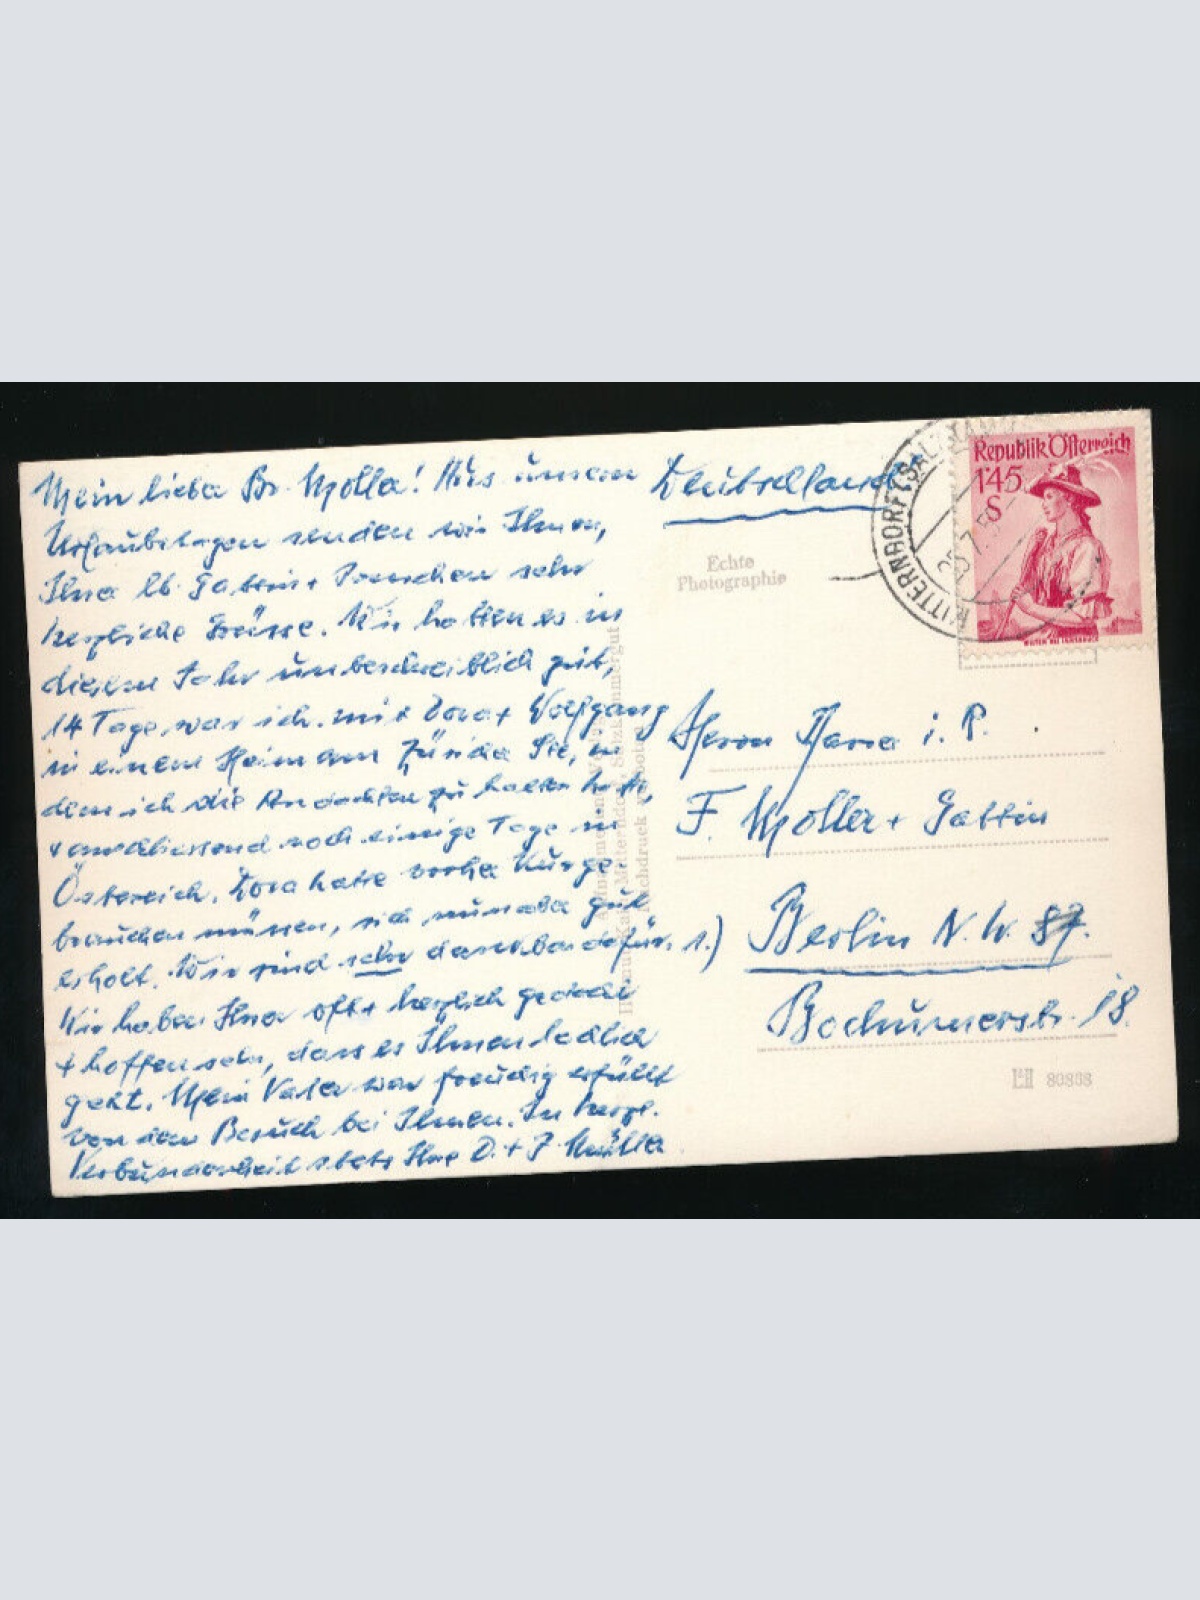 Mein lieber Br. Moller! Aus unseren
Urlaubstagen senden wir Ihnen,
Ihrer lb. Gattin + sehr
herzliche Grüsse. Wir hatten es in
diesem Jahr unbeschreiblich gut,
14 Tage war ich mit Dora + Wolfgang
in einem Heim am Züricher See, in
dem ich die Andachten zu halten hatte,
+ anschliessend noch einige Tage in
Östereich. Dora hatte vorher Kur
brauchen müssen, sich nun aber gut
erholt. Wir sind sehr dankbar dafür.
Wir haben Ihrer oft + herzlich gedacht
+ hoffen sehr, dass es Ihnen
geht. Mein Vater war freudig erfüllt
von dem Besuch bei Ihnen. In herzl.
Verbundenheit stets Ihre D. + J. Müller
Deutschland
Echte
Photographie
MITTERNDORF (SALZKAMM
Republik Österreich
1'45
S
WILTEN BEI INNSBRUCK
Herrn Pfarrer i. R.
F. Moller + Gattin
1.) Berlin N.W. 87.
Bochumerstr. 18.
80808